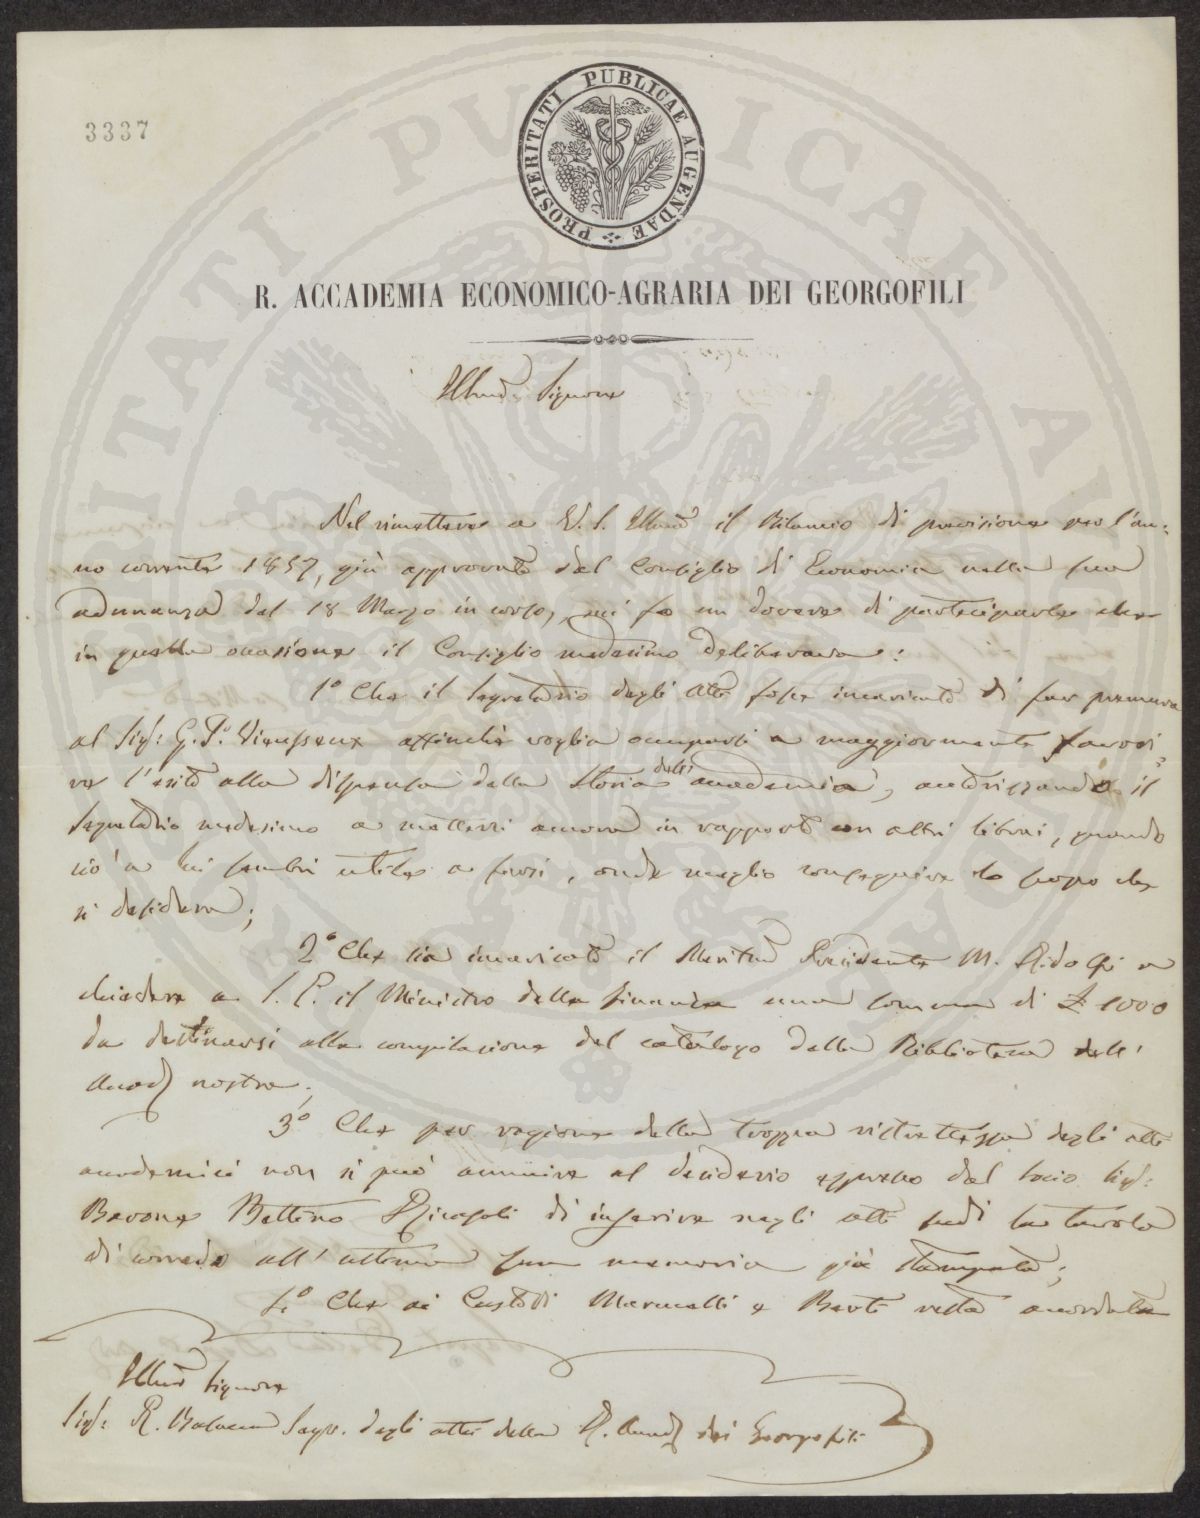 3337
PROSPERITATI PUBLICAE AUGENDAE
R. ACCADEMIA ECONOMICO-AGRARIA DEI GEORGOFILI
Illmo. Signore
Nel rimettere a V. S. Illma il Bilancio di previsione per l'an-
no corrente 1857, già approvato dal Consiglio di Economia nella sua
adunanza del 18 Marzo in corso, mi fo un dovere di parteciparle che
in quella occasione il Consiglio medesimo deliberava:
1º Che il Segretario degli Atti fosse incaricato di far premura
al Sigr: G. P. Vieusseux affinchè voglia occuparsi a maggiormente favori
re l'esito alla dispensa della Storia dell' accademia, autorizzando il
Segretario medesimo a mettersi ancora in rapporto con altri librai, quando
ciò a lui sembri utile a farsi, onde meglio conseguire lo scopo che
si desidera;
2º Che sia incaricato il Meritmo Presidente M. Ridolfi a
chiedere a S. E. il Ministro delle finanze una somma di £ 1000
da destinarsi alla compilazione del catalogo della Biblioteca dell'
Accad nostra;
3º Che per ragione della troppa ristrettezza degli atti
accademici non si può annuire al desiderio espresso dal Socio Sigr:
Barone Bettino Ricasoli di inserire negli atti sudi la tavola
di corredo all' ultima sua memoria già stampata;
4º Che ai Custodi Marucelli e Berti resta accordata
Illmo Signore
Sigr: R. Segr. degli atti della R. Accad dei Georgofili